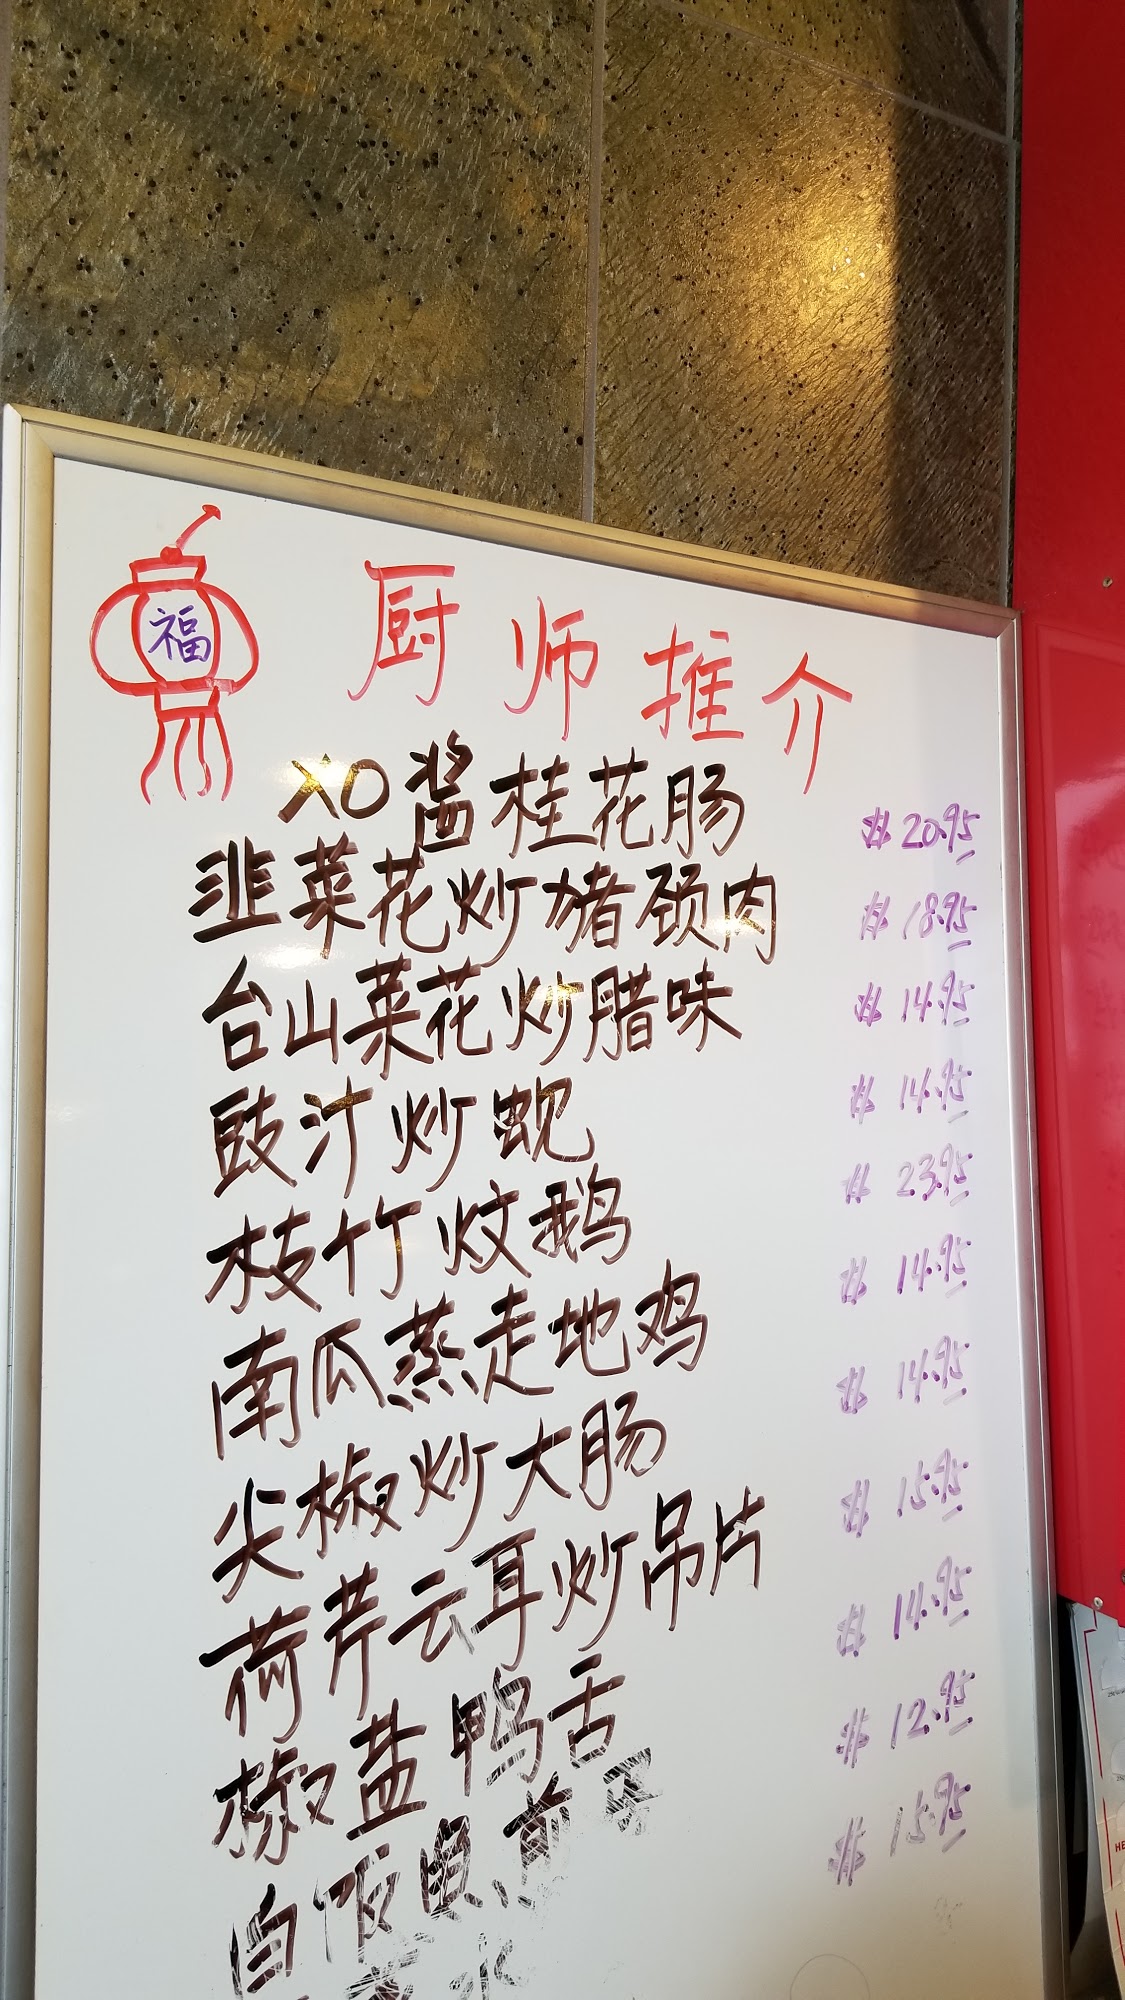 福
厨师推介
XO酱桂花肠 $20.95
韭菜花炒猪颈肉 $18.95
台山菜花炒腊味 $14.95
豉汁炒蚬 $14.95
枝竹炆鹅 $23.95
南瓜蒸走地鸡 $14.95
尖椒炒大肠 $14.95
荷芹云耳炒吊片 $15.95
椒盐鸭舌 $14.95
白饭鱼煎 $12.95
$15.95